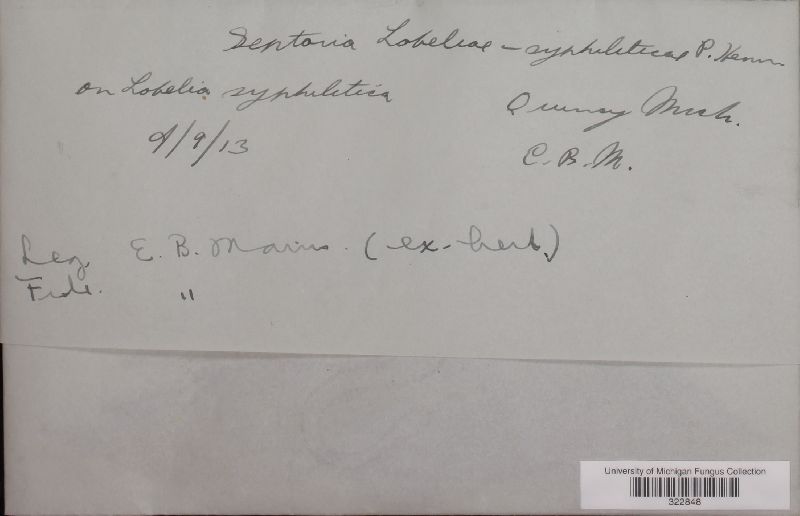 Septoria Lobeliae-syphiliticae P. Henn
on Lobelia syphilitica
Quincy Mich.
9/9/13
C. B. M.
Leg. E. B. Mains. (ex-herb.)
Fide. "
University of Michigan Fungus Collection
322848